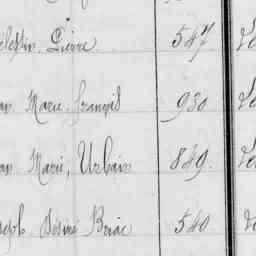 élestin Pierre 547
an Marie françois 930
an Marie, Urbain 849.
seph Désiré Briac 540